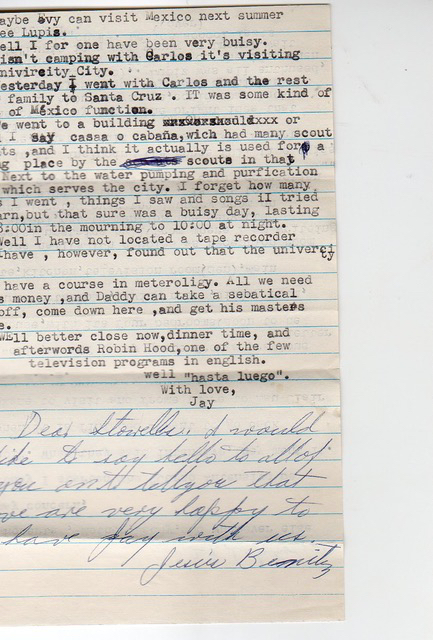 aybe Evy can visit Mexico next summer
ee Lupis.
ell I for one have been very buisy.
isn't camping with Carlos it's visiting
nivircity City.
esterday I went with Carlos and the rest
family to Santa Cruz . IT was some kind of
of Mexico function.
e went to a building or
I say cassa o cabaña,wich had many scout
ts ,and I think it actually is used for a
ng place by the scouts in that
Next to the water pumping and purfication
which serves the city. I forget how many
s I went , things I saw and songs iI tried
arn,but that sure was a buisy day, lasting
8:00in the mourning to 10:00 at night.
Well I have not located a tape recorder
have , however, found out that the univercity
have a course in meteroligy. All we need
s money ,and Daddy can take a sebatical
off, come down here ,and get his masters
e.
WEll better close now,dinner time, and
afterwords Robin Hood,one of the few
television programs in english.
well "hasta luego".
With love,
Jay
Dear Stowells, I would
like to say hello to all of
you and tell you that
we are very happy to
have Jay with us.
Jesús Benitez